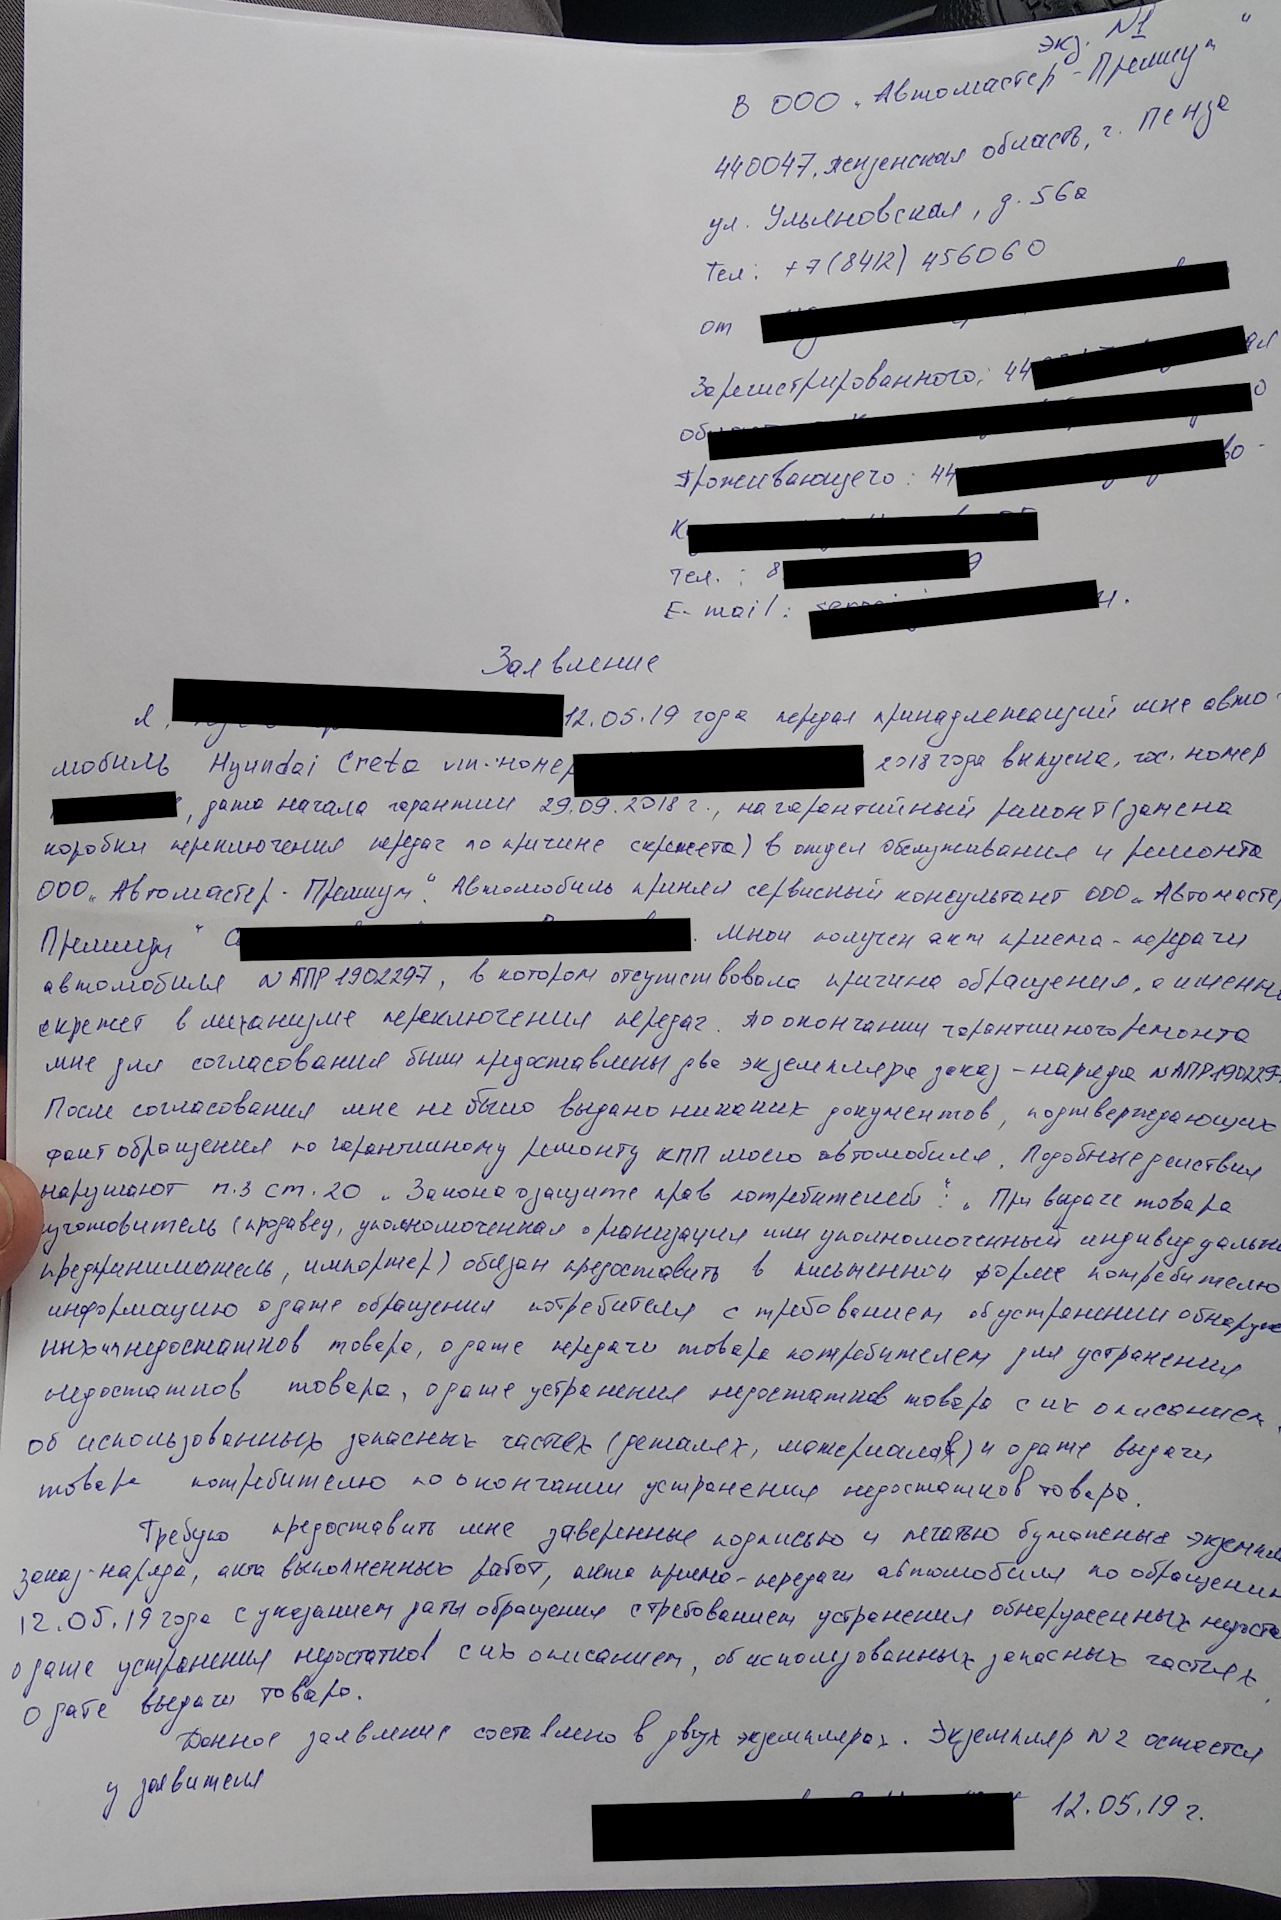 экз. N1
В ООО "Автомастер-Премиум"
440047, Пензенская область, г. Пенза
ул. Ульяновская, д. 56а
Тел: +7(8412) 456060
от
Зарегистрированного: 44
об
Проживающего: 44
К
тел.: 8
E-mail:
Заявление
Я, 12.05.19 года передал принадлежащий мне авто-
мобиль Hyundai Creta vin-номер 2018 года выпуска, гос. номер
, дата начала гарантии 29.09.2018 г., на гарантийный ремонт (замена
коробки переключения передач по причине скрежета) в отдел обслуживания и ремонта
ООО "Автомастер-Премиум". Автомобиль принял сервисный консультант ООО "Автомастер
Премиум" С . Мной получен акт приема-передачи
автомобиля N АПР1902297, в котором отсутствовала причина обращения, а именно
скрежет в механизме переключения передач. По окончании гарантийного ремонта
мне для согласования были предоставлены два экземпляра заказ-наряда N АПР190229
После согласования мне не было выдано никаких документов, подтверждающих
факт обращения по гарантийному ремонту КПП моего автомобиля. Подобные действия
нарушают п.3 ст.20 "Закона о защите прав потребителей": "При выдаче товара
изготовитель (продавец, уполномоченная организация или уполномоченный индивидуальный
предприниматель, импортер) обязан предоставить в письменной форме потребителю
информацию о дате обращения потребителя с требованием об устранении обнаруже
нных им недостатков товара, о дате передачи товара потребителем для устранения
недостатков товара, о дате устранения недостатков товара с их описанием,
об использованных запасных частях (деталях, материалах) и о дате выдачи
товара потребителю по окончании устранения недостатков товара.
Требую предоставить мне заверенные подписью и печатью бумажные экземпля
заказ-наряда, акта выполненных работ, акта приема-передачи автомобиля по обращению
12.05.19 года с указанием даты обращения с требованием устранения обнаруженных недоста
о дате устранения недостатков с их описанием, об использованных запасных частях,
о дате выдачи товара.
Данное заявление составлено в двух экземплярах. Экземпляр N2 остается
у заявителя
12.05.19 г.